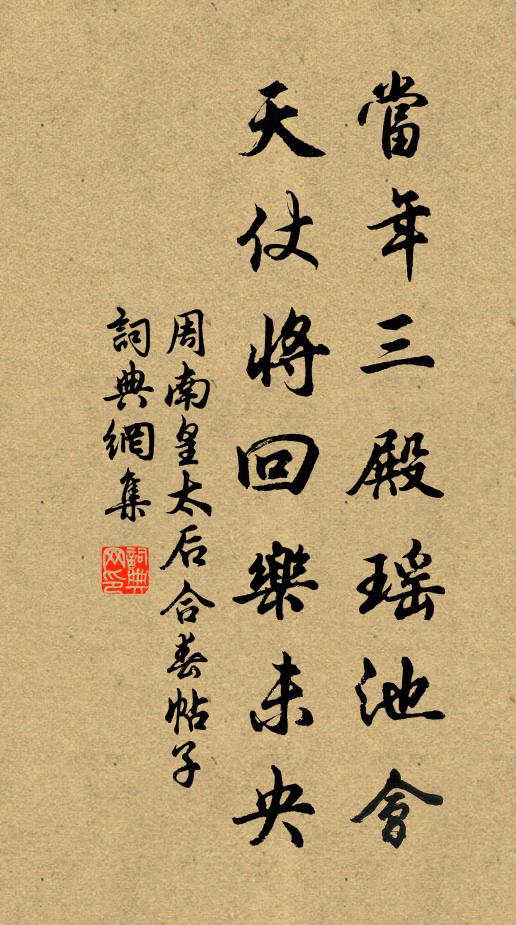 當年三殿瑶池會
天仗將回樂未央
周南皇太后合春帖子
詞典網集
詞典网印